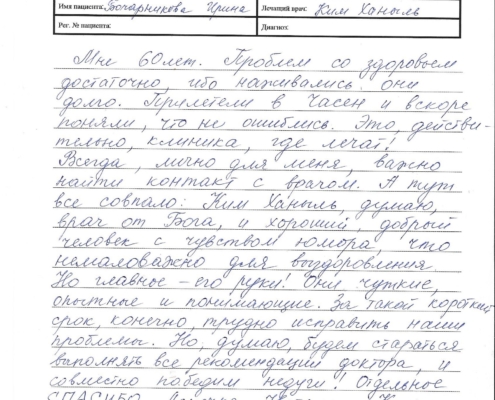 Имя пациента: Бочарникова Ирина Лечащий врач: Ким Ханыль
Рег. № пациента: Диагноз:
Мне 60 лет. Проблем со здоровьем
достаточно, ибо наживались они
долго. Прилетели в Часен и вскоре
поняли, что не ошиблись. Это, действи-
тельно, клиника, где лечат!
Всегда, лично для меня, важно
найти контакт с врачом. А тут
все совпало: Ким Ханыль, думаю,
врач от Бога, и хороший, добрый
человек с чувством юмора, что
немаловажно для выздоровления.
Но главное – его руки! Они чуткие,
опытные и понимающие. За такой короткий
срок, конечно, трудно исправить наши
проблемы. Но, думаю, будем стараться
выполнять все рекомендации доктора, и
совместно победим недуги! Отдельное
СПАСИБО